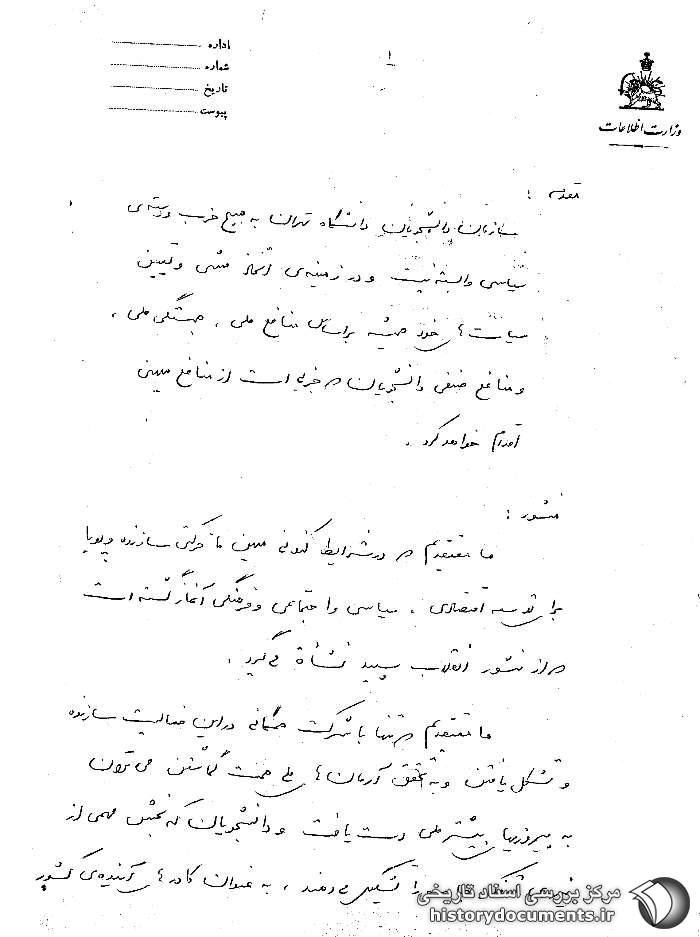 اداره
شماره
تاریخ
پیوست
۱
وزارت اطلاعات
مقدمه :
سازمان دانشجویان دانشگاه تهران به هیچ حزب و دسته‌ی
سیاسی وابسته نیست و در زمینه‌ی اتخاذ مشی و تعیین
سیاست های خود همیشه براساس منافع ملی ، همبستگی ملی ،
و منافع صنفی دانشجویان که جزیی است از منافع میهنی
اقدام خواهد کرد .
منشور :
ما معتقدیم که در شرایط کنونی میهن ما حرکتی سازنده و پویا
برای توسعه اقتصادی ، سیاسی و اجتماعی و فرهنگی آغاز گشته است
که از منشور انقلاب سپید نشأة می‌گیرد .
ما معتقدیم که تنها با شرکت همگانی در این فعالیت سازنده
و تشکل یافتن و به تحقق آرمان های ملی همت گماشتن می توان
به پیروزیهای بیشتر ملی دست یافت و دانشجویان که بخش مهمی از
را تشکیل می دهند ، به عنوان کادرهای آینده‌ی کشور
مرکز بررسی اسناد تاریخی
historydocuments.ir